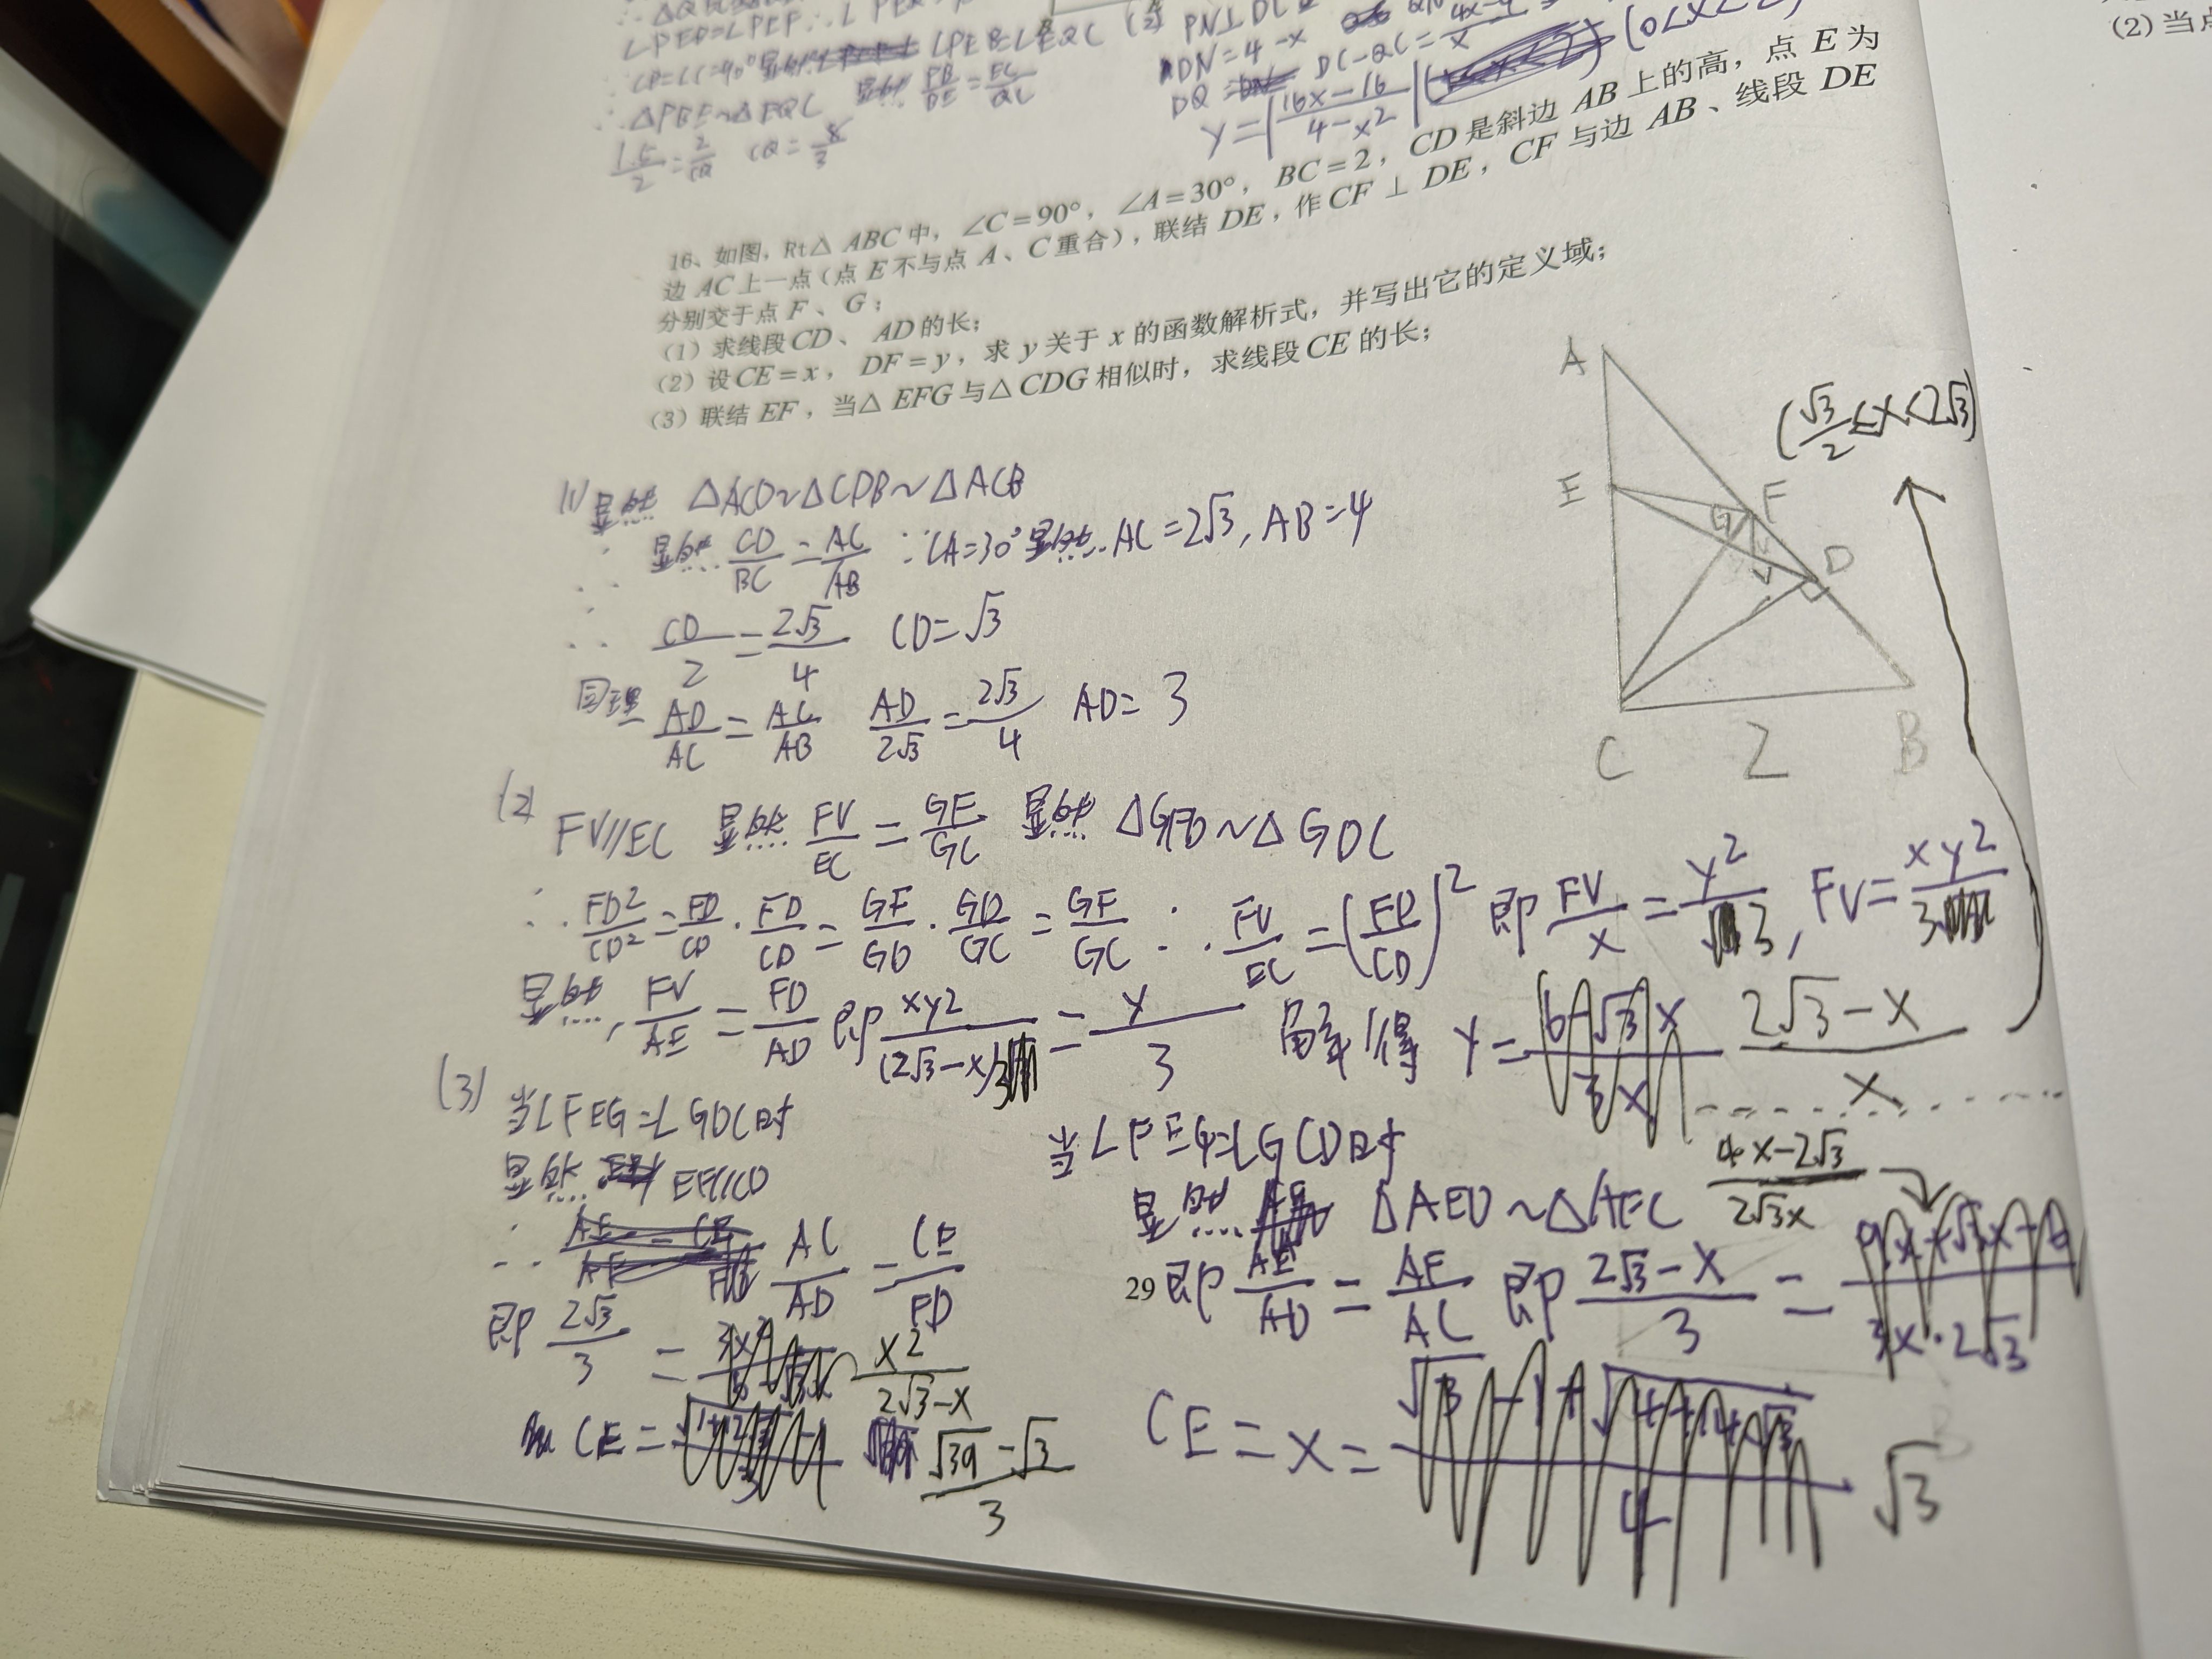 ∠PEP=∠PEP ∴∠
∠B=∠C=90° 显然 ∠PEB=∠EQC
∴ △PBE∽△EQC 显然 =EC/QC
1.5/2=2/CQ CQ=8/3
(2) PN⊥DC
DN=4-x
DQ= DC-QC=
y=|(16x-16)/(4-x²)|
(2)当点
16、如图，Rt△ ABC 中，∠C=90°，∠A=30°，BC=2，CD 是斜边 AB 上的高，点 E 为
边 AC 上一点（点 E 不与点 A、C 重合），联结 DE，作 CF ⊥ DE，CF 与边 AB、线段 DE
分别交于点 F、G；
（1）求线段 CD、AD 的长；
（2）设 CE=x，DF=y，求 y 关于 x 的函数解析式，并写出它的定义域；
（3）联结 EF，当△ EFG 与△ CDG 相似时，求线段 CE 的长；
A
E
F
G
V
D
C
2
B
(√3/2≤x<2√3)
(1) 显然 △ACD∽△CDB∽△ACB
∴ 显然 CD/BC=AC/AB ∵∠A=30° 显然 AC=2√3, AB=4
∴ CD/2=2√3/4 CD=√3
同理 AD/AC=AC/AB AD/2√3=2√3/4 AD=3
(2) FV//EC 显然 FV/EC=GF/GC 显然 △GFD∽△GDC
∴ FD²/CD²=FD/CD·FD/CD=GF/GD·GD/GC=GF/GC ∴ FV/EC=(FD/CD)² 即 FV/x=y²/3, FV=xy²/3
显然, FV/AE=FD/AD 即 xy²/(2√3-x)3=y/3 解得 y=(2√3-x)/x
(3) 当∠FEG=∠GDC时
显然 EF//CD
∴ AC/AD=CE/FD
即 2√3/3=x²/(2√3-x)
CE=(√39-√3)/3
当∠FEG=∠GCD时
显然 △AED∽△AFC
即 AE/AD=AF/AC 即 (2√3-x)/3=
(4x-2√3)/2√3x
CE=x=√3
29